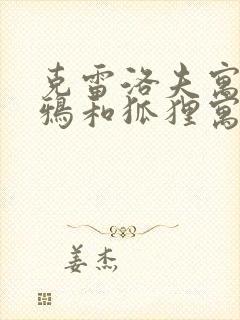 克雷洛夫寓
鸦和狐狸寓
姜杰